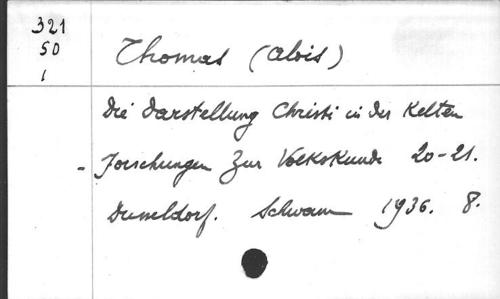 321
50
1
Thomas (Alois)
Die Darstellung Christi in der Kelten
- Forschungen zur Volkskunde 20-21.
Dusseldorf. Schwann 1936. 8.